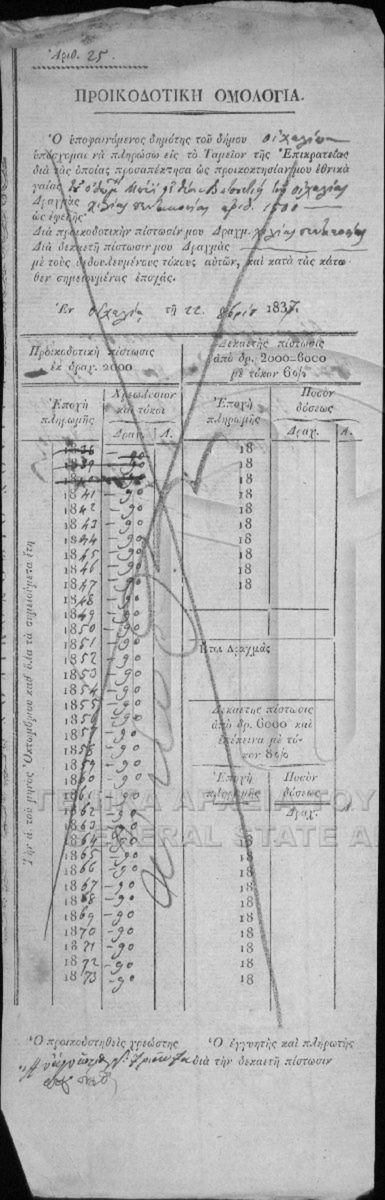 Ἀριθ. 25.
ΠΡΟΙΚΟΔΟΤΙΚΗ ΟΜΟΛΟΓΙΑ.
Ὁ ὑποφαινόμενος δημότης τοῦ δήμου Οἰχαλίας
ὑπόσχομαι νὰ πληρώσω εἰς τὸ Ταμεῖον τῆς Ἐπικρατείας
διὰ τὰς ὁποίας προσαπέκτησα ὡς προικοκτησίαν μου ἐθνικὰ
γαίας
Δραχμὰς χιλίας πεντακοσίας ἀριθ. 1500
ὡς ἐφεξῆς.
Διὰ προικοδοτικὴν πίστωσίν μου Δραχμ. χιλίας πεντακοσίας
Διὰ δεκαετῆ πίστωσιν μου Δραχμὰς
μὲ τοὺς ὠφειλομένους τόκους αὐτῶν, καὶ κατὰ τὰς κάτω-
θεν σημειουμένας ἐποχάς.
Ἐν Οἰχαλίᾳ τῇ 22 1837.
Προικοδοτικὴ πίστωσις
ἐκ δραχ. 2000
Δεκαετὴς πίστωσις
ἀπὸ δρ. 2000-6000
μὲ τόκον 6 0/0
Ἐποχὴ
πληρωμῆς
Χρεωλύσιον
καὶ τόκοι
Δραχ. Λ.
Ἐποχὴ
πληρωμῆς
Ποσὸν
δόσεως
Δραχ. Λ.
1838 - 90 18
1839 - 90 18
1840 - 90 18
1841 - 90 18
1842 - 90 18
1843 - 90 18
1844 - 90 18
1845 - 90 18
1846 - 90 18
1847 - 90 18
1848 - 90
1849 - 90
1850 - 90
1851 - 90
1852 - 90
1853 - 90
1854 - 90
1855 - 90
1856 - 90
1857 - 90
1858 - 90
1859 - 90
1860 - 90
1862 - 90
1863 - 90
1864 - 90 18
1865 - 90 18
1866 - 90 18
1867 - 90 18
1868 - 90 18
1869 - 90 18
1870 - 90 18
1871 - 90 18
1872 - 90 18
1873 - 90 18
Ἤτοι Δραχμὰς
Δεκαετὴς πίστωσις
ἀπὸ δρ. 6000 καὶ
ἐπέκεινα μὲ τό-
κον 8 0/0
Ἐποχὴ
πληρωμῆς
Ποσὸν
δόσεως
Δραχ.
Τὴν ά. τοῦ μηνὸς Ὀκτωμβρίου καθ' ὅλα τὰ σημειούμενα ἔτη
ΓΕΝΙΚΑ ΑΡΧΕΙΑ ΤΟΥ
GENERAL STATE A
Ὁ προικοδοτηθεὶς χρεώστης
Ὁ ἐγγυητὴς καὶ πληρωτὴς
διὰ τὴν δεκαετῆ πίστωσιν